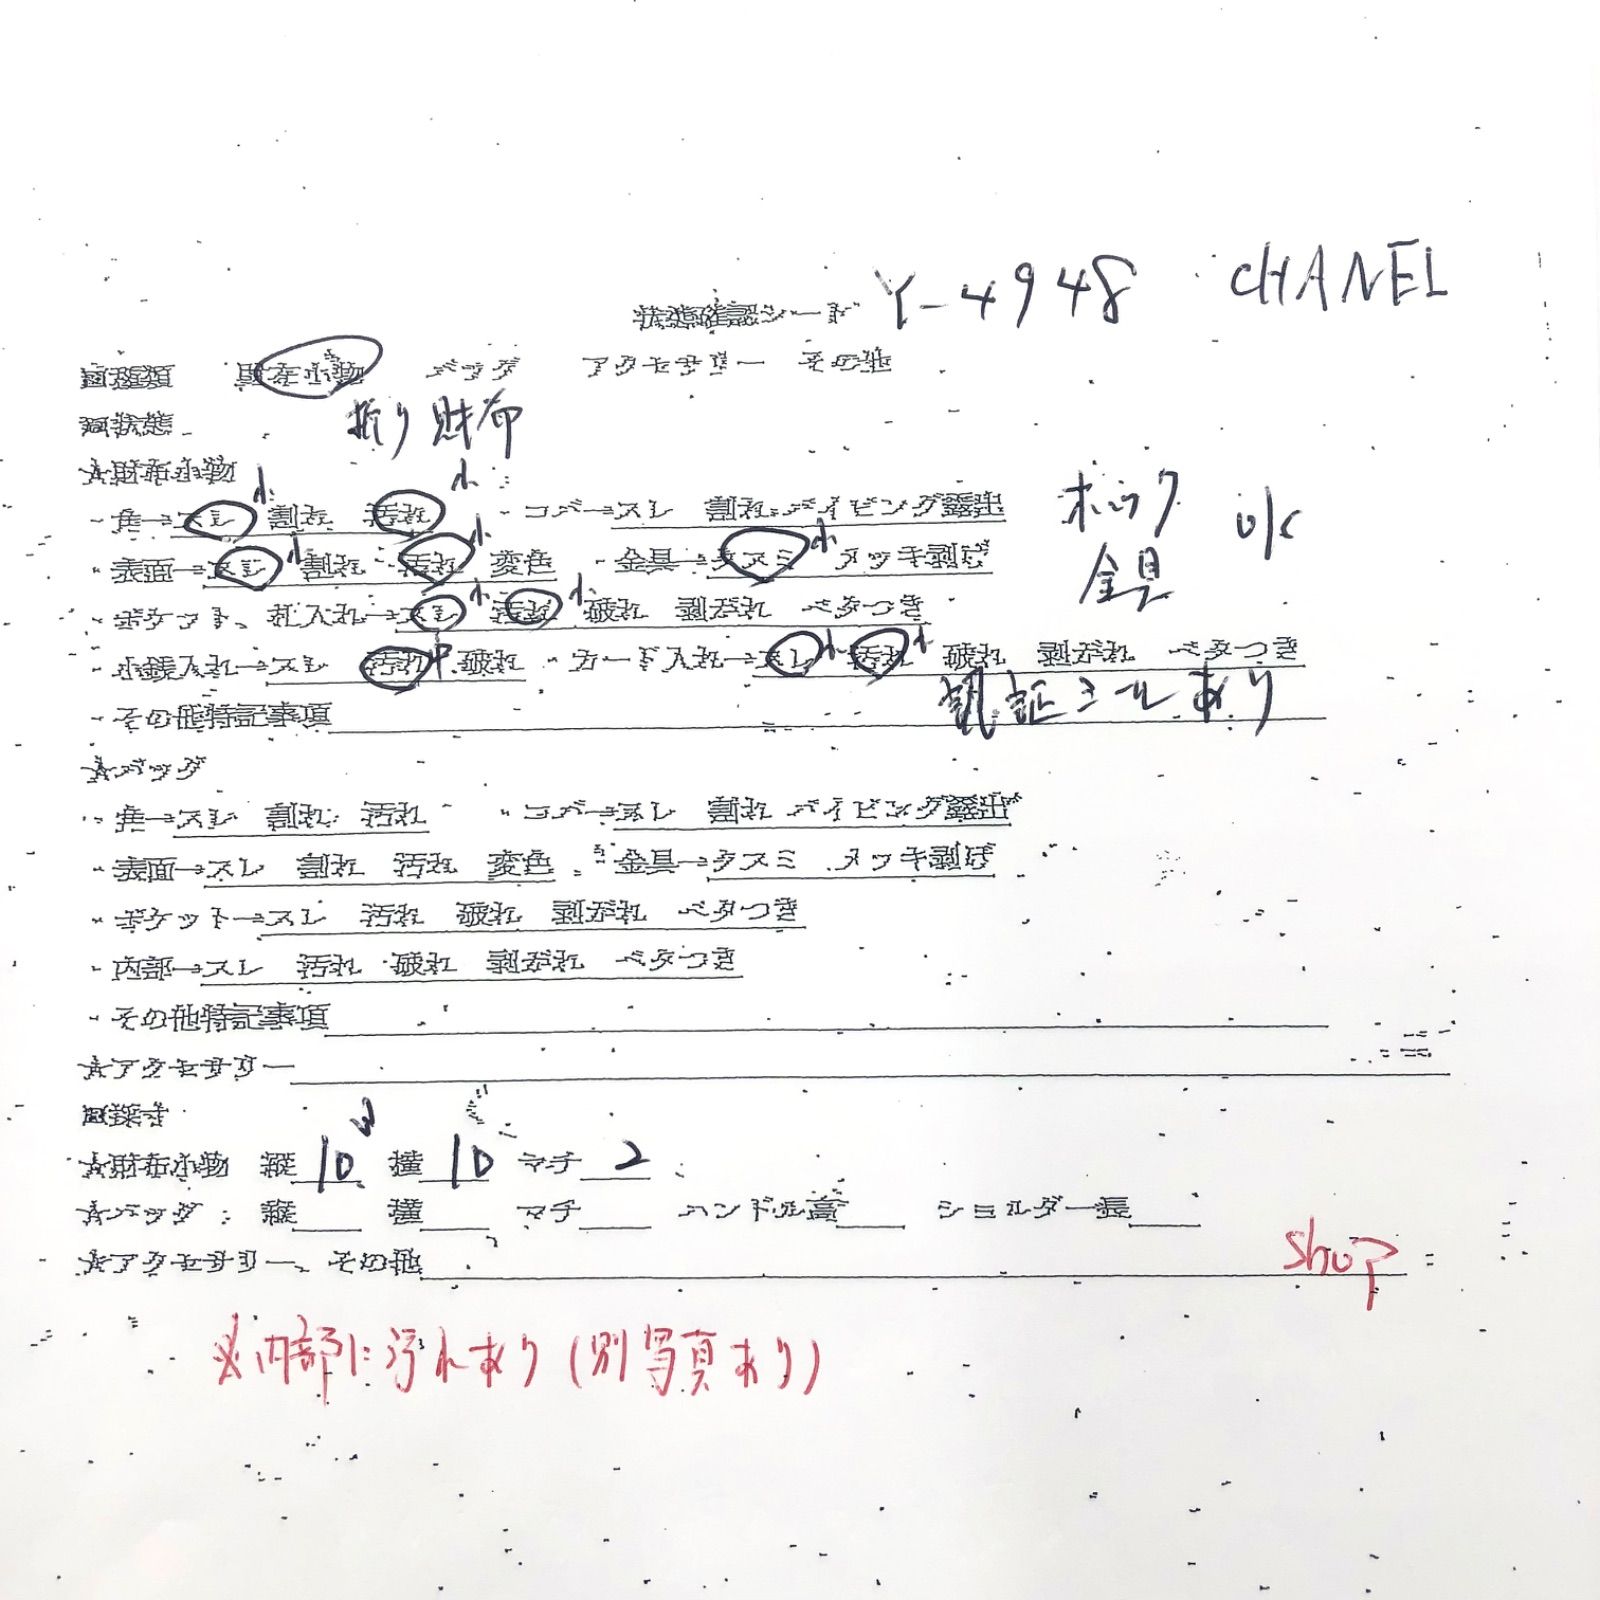 状態確認シート Y-4948 CHANEL
□種類 財布小物 バッグ アクセサリー その他
□状態 折り財布
☆財布小物
・角→スレ小 割れ 汚れ小 ・コバ→スレ 割れ パイピング露出 ホック
・表面→スレ小 割れ 汚れ小 変色 ・金具→クスミ小 メッキ剥げ 金具
・ポケット、札入れ→スレ小 汚れ小 破れ 剥がれ ベタつき
・小銭入れ→スレ 汚れ中 破れ ・カード入れ→スレ小 汚れ小 破れ 剥がれ ベタつき
・その他特記事項 認証シールあり
☆バッグ
・角→スレ 割れ 汚れ ・コバ→スレ 割れ パイピング露出
・表面→スレ 割れ 汚れ 変色 ・金具→クスミ メッキ剥げ
・ポケット→スレ 汚れ 破れ 剥がれ ベタつき
・内部→スレ 汚れ 破れ 剥がれ ベタつき
・その他特記事項
☆アクセサリー
□採寸
☆財布小物 縦10 横10 マチ2
☆バッグ 縦 横 マチ ハンドル高 ショルダー長
☆アクセサリー、その他 shop
※内部に汚れあり(別写真あり)